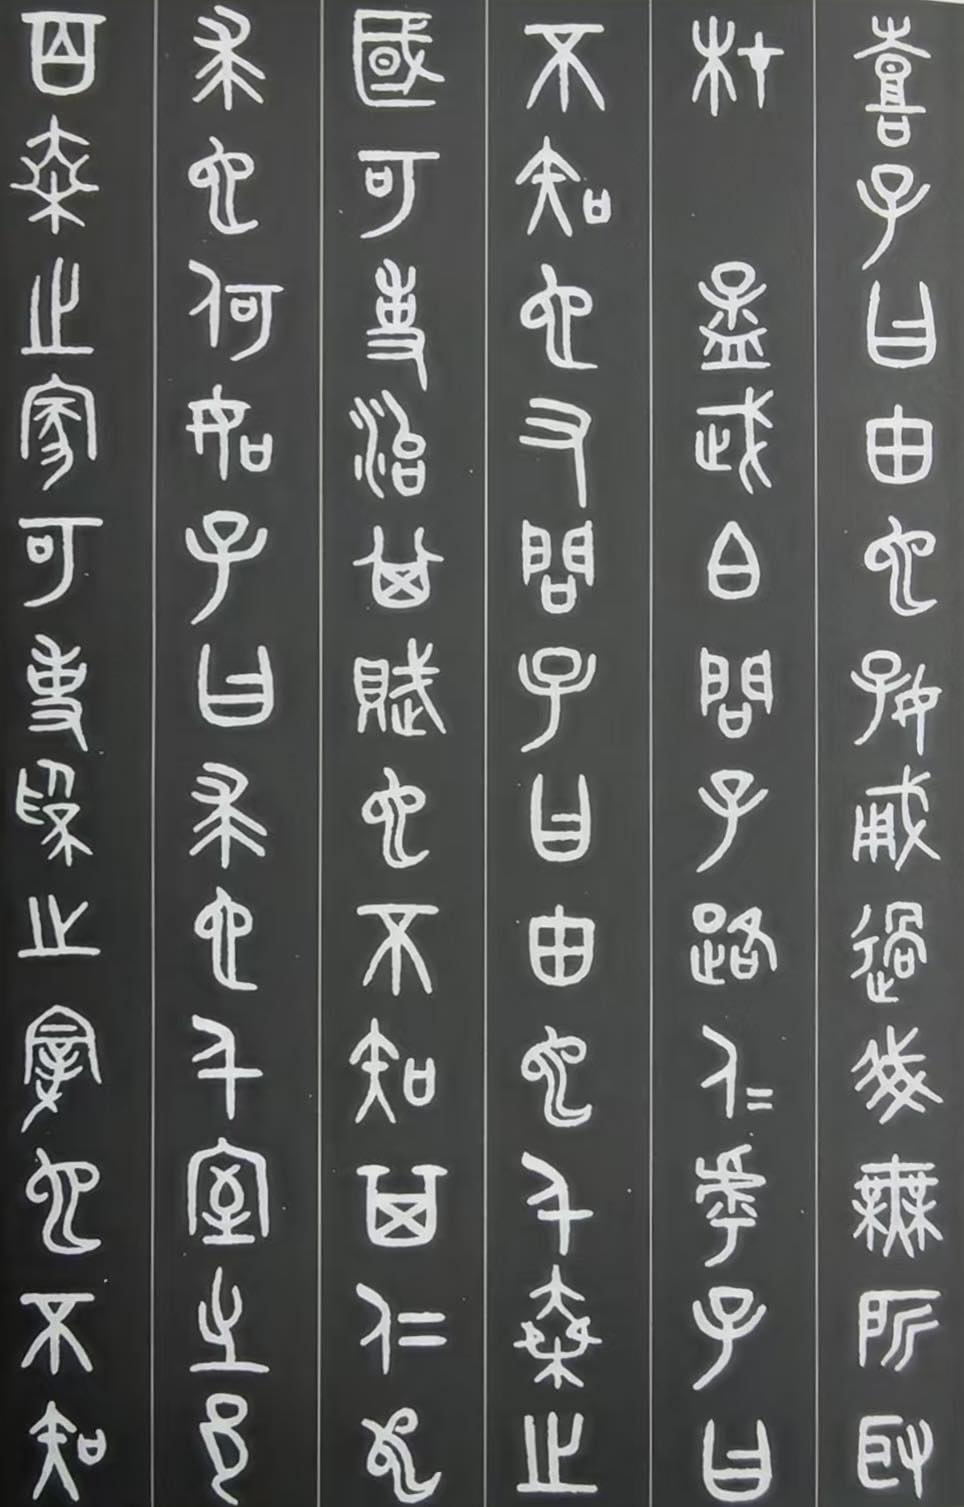 喜子曰由也好勇過我無所取
材 孟武伯問子路仁乎子曰
不知也又問子曰由也千乘之
國可使治其賦也不知其仁也
求也何如子曰求也千室之邑
百乘之家可使為之宰也不知